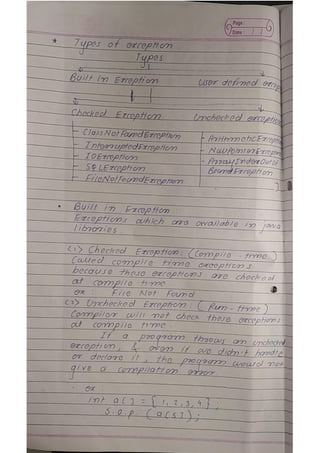 Page
Date 116
* Types of exception
Types
Built In Exception User defined
Checked Exception Unchecked exception
ClassNotFoundException
InterruptedException
IOException
SQLException
FileNotFoundException
Arithmetic
NullPointer
ArrayIndexOutOf
BoundException
• Built In Exception
Exceptions which are available in java
libraries
(1) Checked Exception: (Compile - time)
Called compile time exceptions
because these exceptions are checked
at compile time
ex File Not Found
(2) Unchecked Exception: (Run - time)
Compiler will not check these exceptions
at compile time
If a program throws an unchecked
exception, & even if we didn't handle
or declare it, the program would not
give a compilation error
ex
int a[] = {1, 2, 3, 4};
S.o.p. (a[5]);